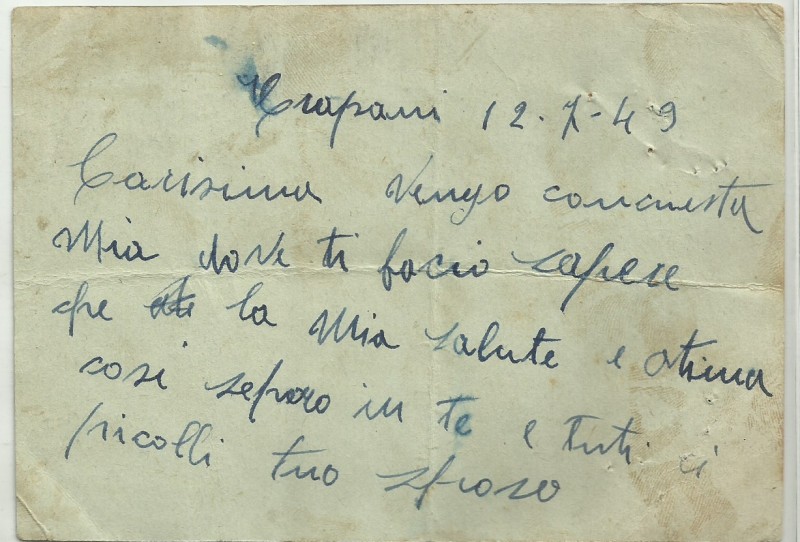 Trapani 12-7-49
Carisima vengo conquesta
Mia dove ti facio sapere
che la Mia salute e otima
cosi sepero in te e tuti i
picolli tuo sposo